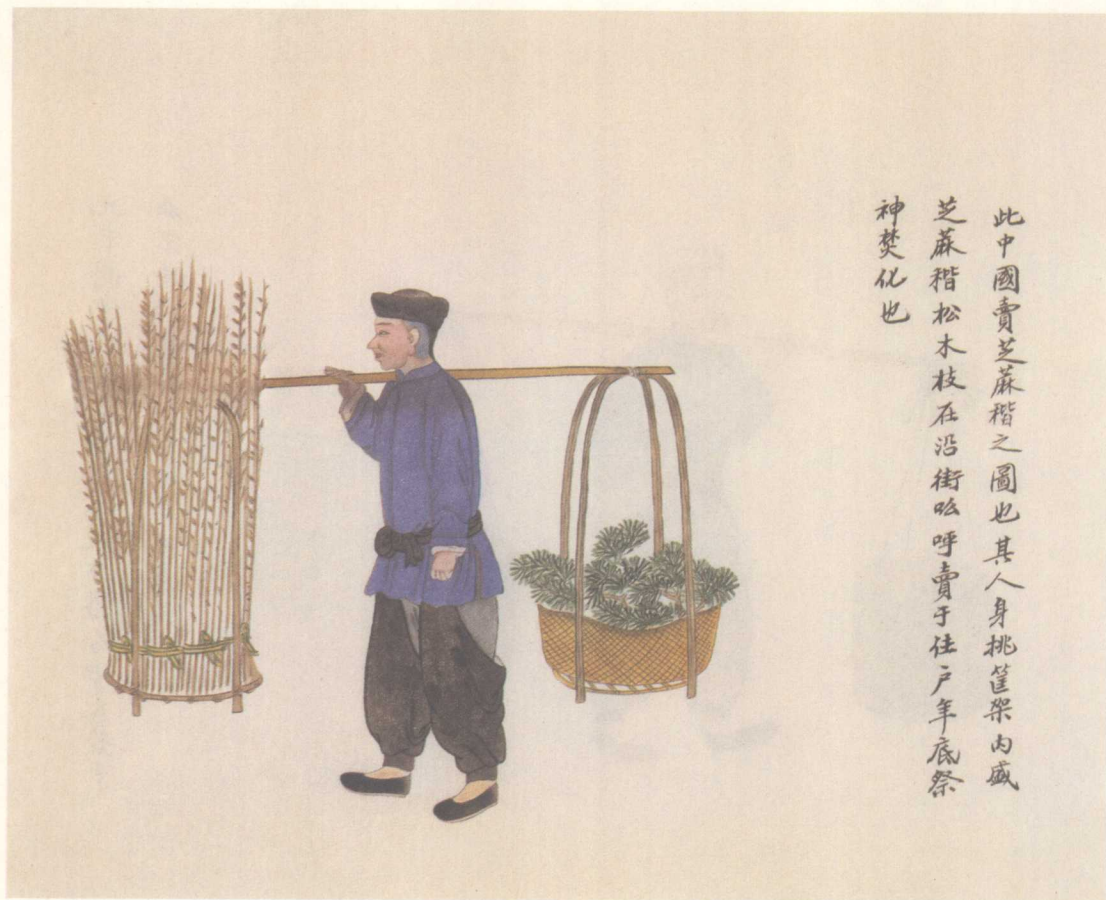 此中國賣芝蔴稭之圖也其人身挑筐架內盛
芝蔴稭松木枝在沿街吆呼賣于住户年底祭
神焚化也